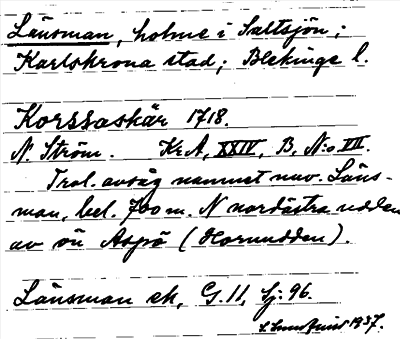 Länsman, holme i Saltsjön;
Karlskrona stad; Blekinge l.
Korssaskär 1718.
N. Ström. KrA, XXIV, B, N:o VII.
Trol. avsåg namnet nuv. Läns-
man, bel. 700 m. N nordöstra udden
av ön Aspö (Hornudden).
Länsman ek, G. 11, Sj: 96.
1937.